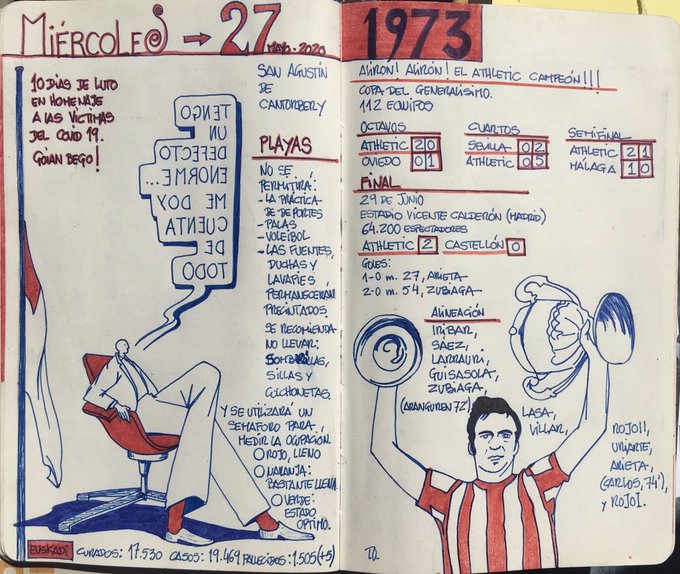 MIÉRCOLES → 27
MAYO - 2020
10 DÍAS DE LUTO
EN HOMENAJE
A LAS VÍCTIMAS
DEL COVID 19.
GOIAN BEGO!
TENGO
UN
DEFECTO
ENORME...
ME DOY
CUENTA
DE
TODO
SAN AGUSTÍN
DE
CANTORBERY
PLAYAS
NO SE
PERMITIRÁ:
- LA PRÁCTICA
DE DEPORTES
- PALAS
- VOLEIBOL
- LAS FUENTES,
DUCHAS Y
LAVAPIES
PERMANECERAN
PRECINTADOS.
SE RECOMIENDA
NO LLEVAR:
SOMBRILLAS,
SILLAS Y
COLCHONETAS.
Y SE UTILIZARÁ UN
SEMÁFORO PARA
MEDIR LA OCUPACIÓN
O ROJO, LLENO
O NARANJA:
BASTANTE LLENA
O VERDE:
ESTADO
OPTIMO.
EUSKADI CURADOS: 17.530 CASOS: 19.469 FALLECIDOS: 1.505 (+5)
1973
ALIRON! ALIRÓN! EL ATHLETIC CAMPEÓN!!!
COPA DEL GENERALÍSIMO.
112 EQUIPOS
OCTAVOS
ATHLETIC 2 0
OVIEDO 0 1
CUARTOS
SEVILLA 0 2
ATHLETIC 0 5
SEMIFINAL
ATHLETIC 2 1
MÁLAGA 1 0
FINAL
29 DE JUNIO
ESTADIO VICENTE CALDERÓN (MADRID)
64.200 ESPECTADORES
ATHLETIC 2 CASTELLÓN 0
GOLES:
1-0 m. 27, ARIETA
2-0 m. 54, ZUBIAGA
ALINEACIÓN
IRIBAR,
SAEZ,
LARRAURI,
GUISASOLA,
ZUBIAGA,
(ARANGUREN 72')
LASA,
VILLAR,
ROJO II,
URIARTE,
ARIETA,
(CARLOS, 74'),
y ROJO I.